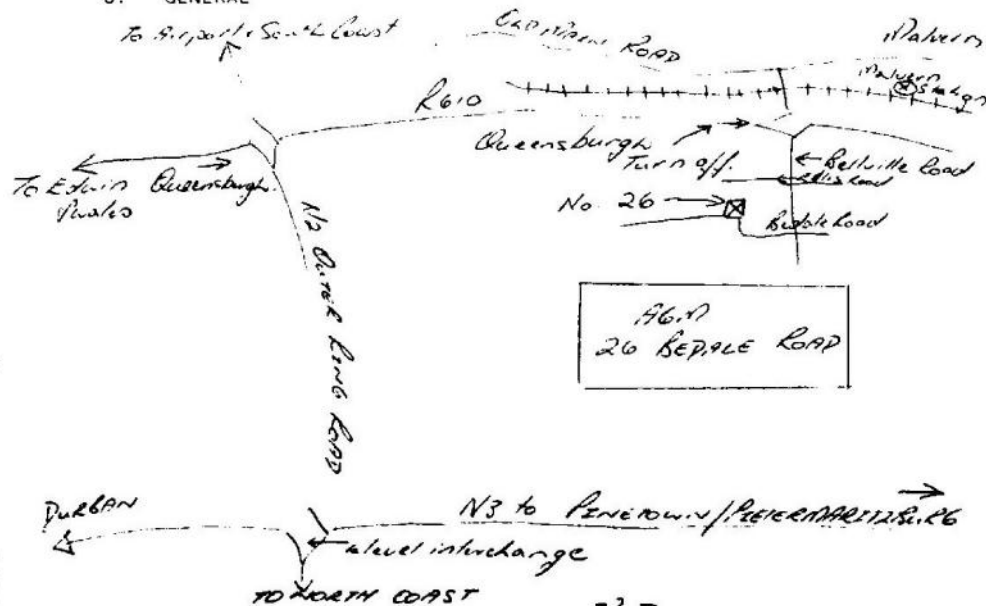 GENERAL
To Airport & South Coast
OLD MAIN ROAD
Malvern
Malvern
Station
R610
Queensburgh
Turn off.
← Bellville Road
Road
To Edwin Queensburgh.
Swales
No. 26
Bedale Road
N2 OUTER RING ROAD
AGM
26 BEDALE ROAD
DURBAN
N3 to PINETOWN/PIETERMARITZBURG
level interchange
TO NORTH COAST